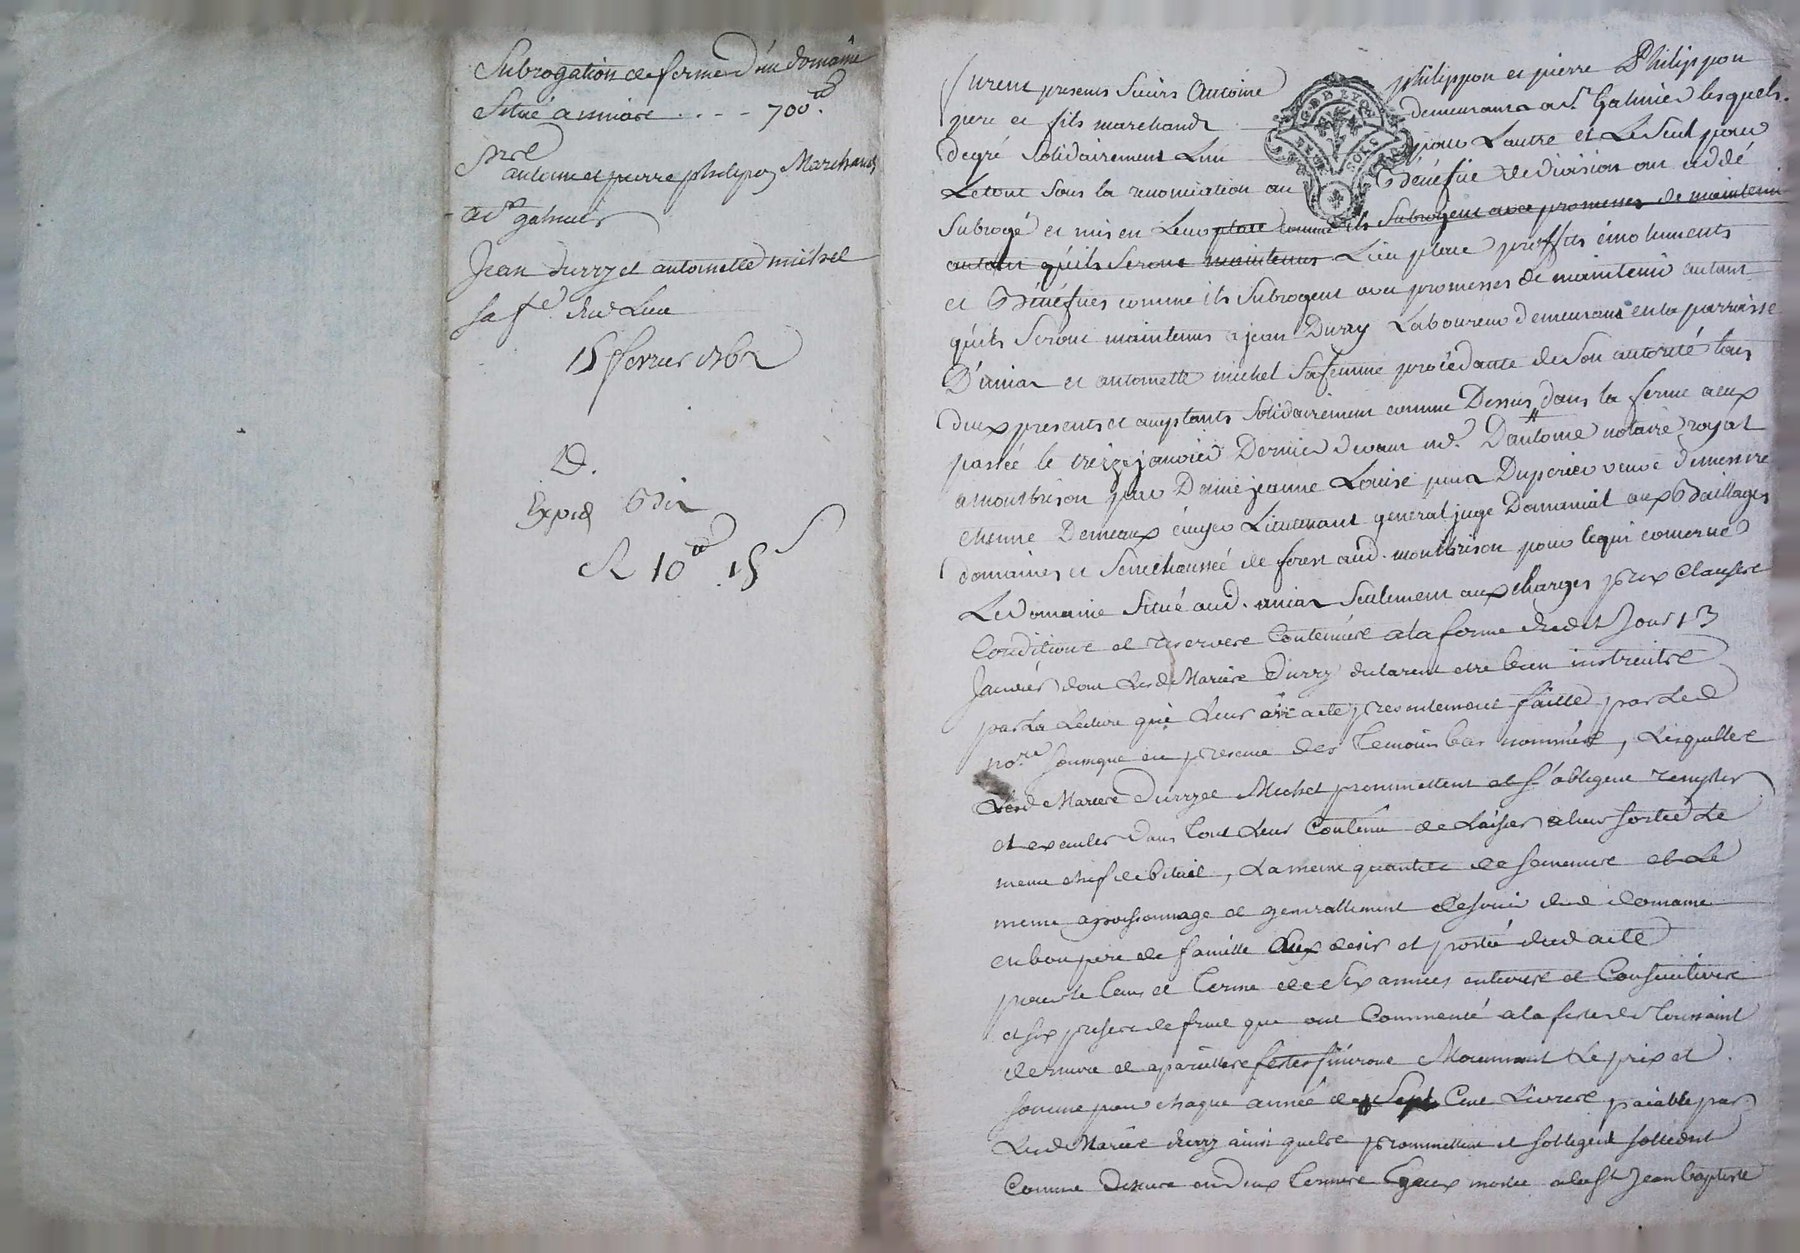 Subrogation de ferme d'un domaine
Situé a uniase .... 700ᵗᵗ
antoine et pierre philipon Marchands
a Sᵗ galmier
Jean durzy et antoinette michel
sa fᵉ dud Lieu
15 fevrier 1762
D.
Expié Gdin
R 10ᵗᵗ 15ˢ
furent presents Sieurs Antoine philippon et pierre Philippon
pere et fils marchands demeurants a Sᵗ Galmier lesquels
degré Solidairement Lun pour Lautre et Le Seul pour
Letout Sous la renonciation au Bénéfice de division ont cedé
Subrogé et mis en Leur place comme ils Subrogent avec promesses de maintenir
autant qu'ils seront maintenus Lieu place proffits émoluments
et Bénéfices comme ils Subrogent avec promesses de maintenir autant
qu'ils Seront maintenus a jean Durzy Laboureur demeurant en la parroisse
D'unias et antoinette michel Sa femme procédante de Son autorité tous
deux presents et acceptants Solidairement comme Dessus dans la ferme a eux
passée le treize janvier Dernier devant mᵉ. Dantoine notaire royal
a montbrison par Dame jeanne Louise Duperier veuve de messire
etienne Demeaux écuyer Lieutenant general juge Domanial aux Bailliages
domaines et Senechaussée de forest aud. montbrison pour le qui concerne
Le domaine Situé aud. unias Seulement aux charges prix Clauses et
Conditions et reserves Contenues a la ferme dudit Jour 13
Janvier dont Lesd Mariés Durzy declarent etre bien instruits
par La Lecture que Leur a été presentement faitte par Led
noʳᵉ Sousigné en presence des temoins bas nommés, Lesquelles
Lesd Mariés Durzy et Michel promettent et s'obligent remplir
et executer dans tout Leur Contenu de Laisser a leur sortie Le
meme chef de Bétail, La meme quantité de semence et Le
meme apoissonnage et generallement de jouir dud domaine
en bon pere de famille Aux desir et portée dud acte
pour le tems et terme de Six années entieres et Consecutives
et six prises de fruit qui ont Commencé a la feste de Toussaint
derniere et a pareilles festes finiront Moyennant Le prix et
somme pour chaque année de Sept Cent Livres paiable par
Lesd Mariés durzy ainsi quils promettent et sobligent solidᵗ
Comme Dessus en deux termes Egaux moitié a la Sᵗ Jean baptiste